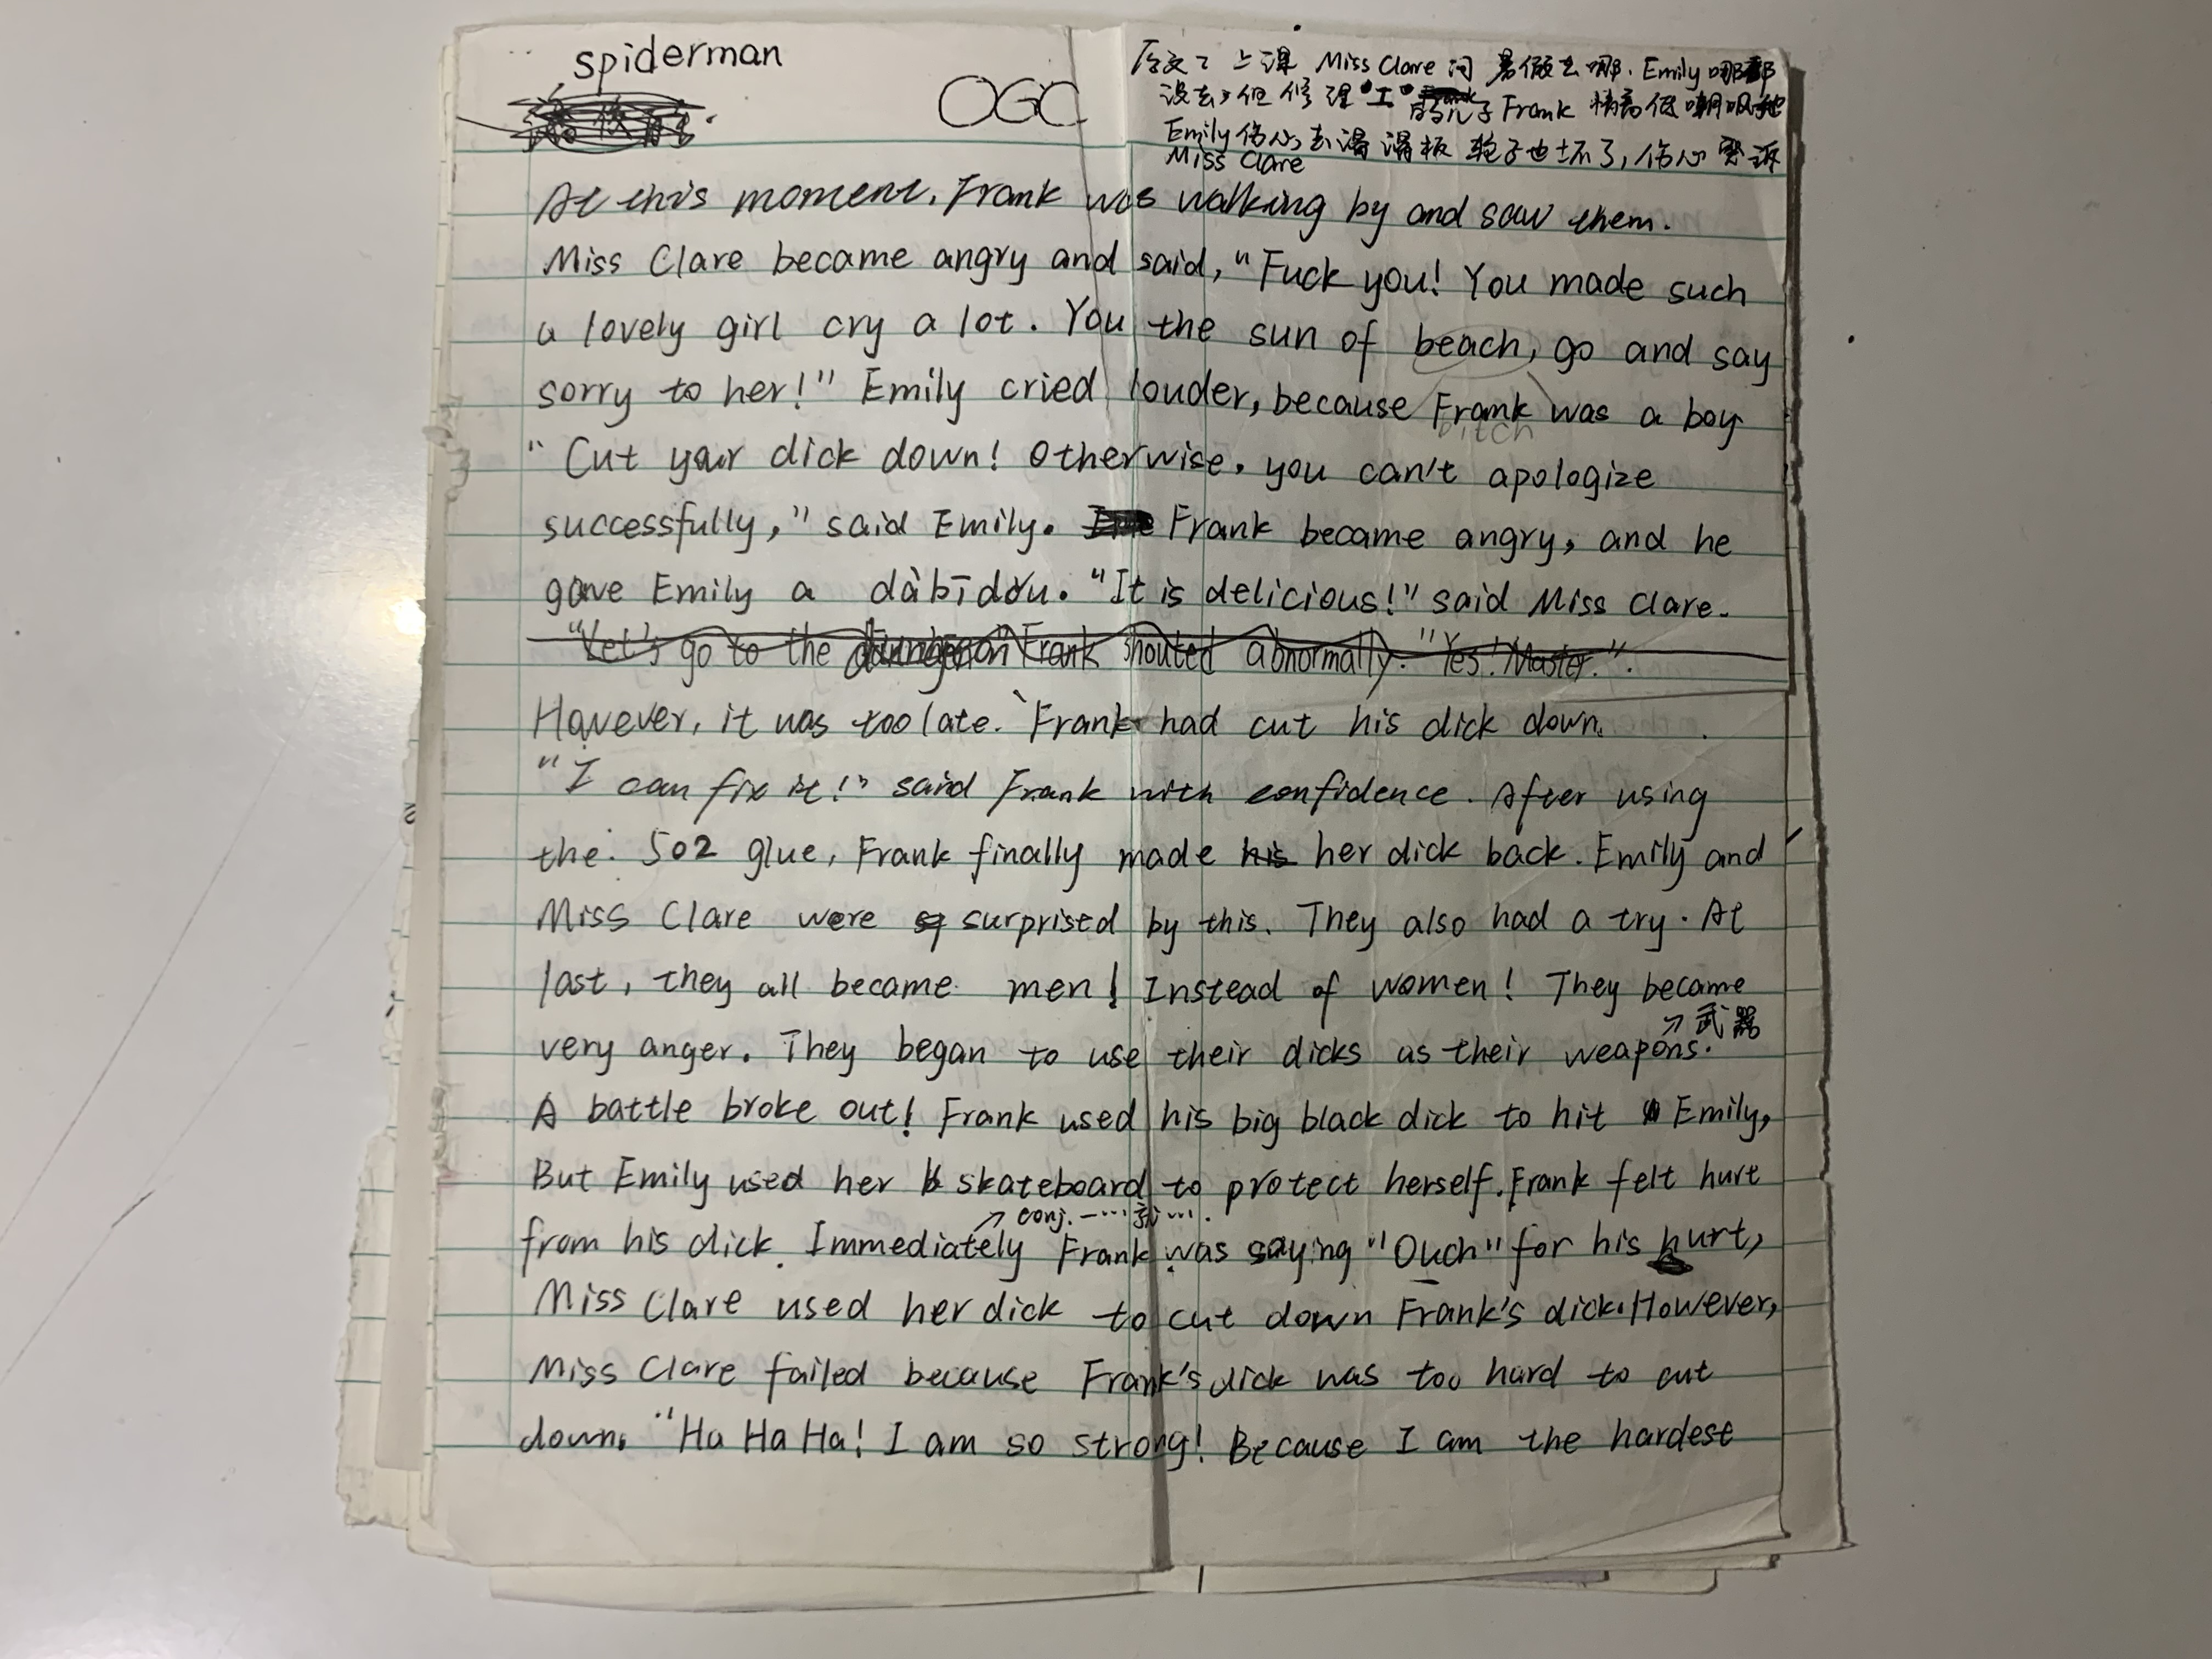 spiderman
OGC
原文：上课 Miss Clare 问 暑假去哪. Emily 哪都
没去, 但修理"工"的儿子 Frank 情商低嘲讽她
Emily 伤心, 去滑滑板 轮子也坏了, 伤心 告诉
Miss Clare
At this moment, Frank was walking by and saw them.
Miss Clare became angry and said, "Fuck you! You made such
a lovely girl cry a lot. You the sun of beach, go and say
sorry to her!" Emily cried louder, because Frank was a boy
bitch
"Cut your dick down! Otherwise, you can't apologize
successfully," said Emily. Frank became angry, and he
gave Emily a dàbīdòu. "It is delicious!" said Miss Clare.
"Let's go to the dungeon" Frank shouted abnormally. "Yes! Master.".
However, it was too late. Frank had cut his dick down.
"I can fix it!" said Frank with confidence. After using
the 502 glue, Frank finally made his her dick back. Emily and
Miss Clare were surprised by this. They also had a try. At
last, they all became men! Instead of women! They became
→ 武器
very anger. They began to use their dicks as their weapons.
A battle broke out! Frank used his big black dick to hit Emily,
But Emily used her skateboard to protect herself. Frank felt hurt
→ conj. 一…就….
from his dick. Immediately Frank was saying "Ouch" for his hurt,
Miss Clare used her dick to cut down Frank's dick. However,
Miss Clare failed because Frank's dick was too hard to cut
down. "Ha Ha Ha! I am so strong! Because I am the hardest